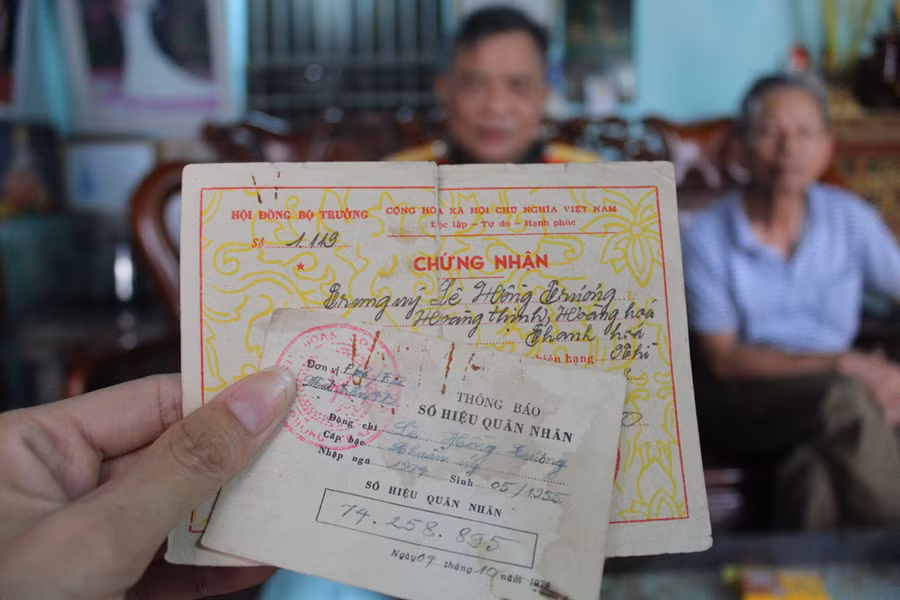 HỘI ĐỒNG BỘ TRƯỞNG
Số 1.149
CỘNG HÒA XÃ HỘI CHỦ NGHĨA VIỆT NAM
Độc lập – Tự do – Hạnh phúc
CHỨNG NHẬN
Trung uý Lê Hồng Trường
Hoằng thịnh, Hoằng hoá
Thanh hoá
hạng Nhì
Đơn vị
THÔNG BÁO
SỐ HIỆU QUÂN NHÂN
Đồng chí Lê Hồng Trường
Cấp bậc Chuẩn uý
Nhập ngũ 1974 Sinh 05/1955
SỐ HIỆU QUÂN NHÂN
74.258.895
Ngày 04 tháng 10 năm